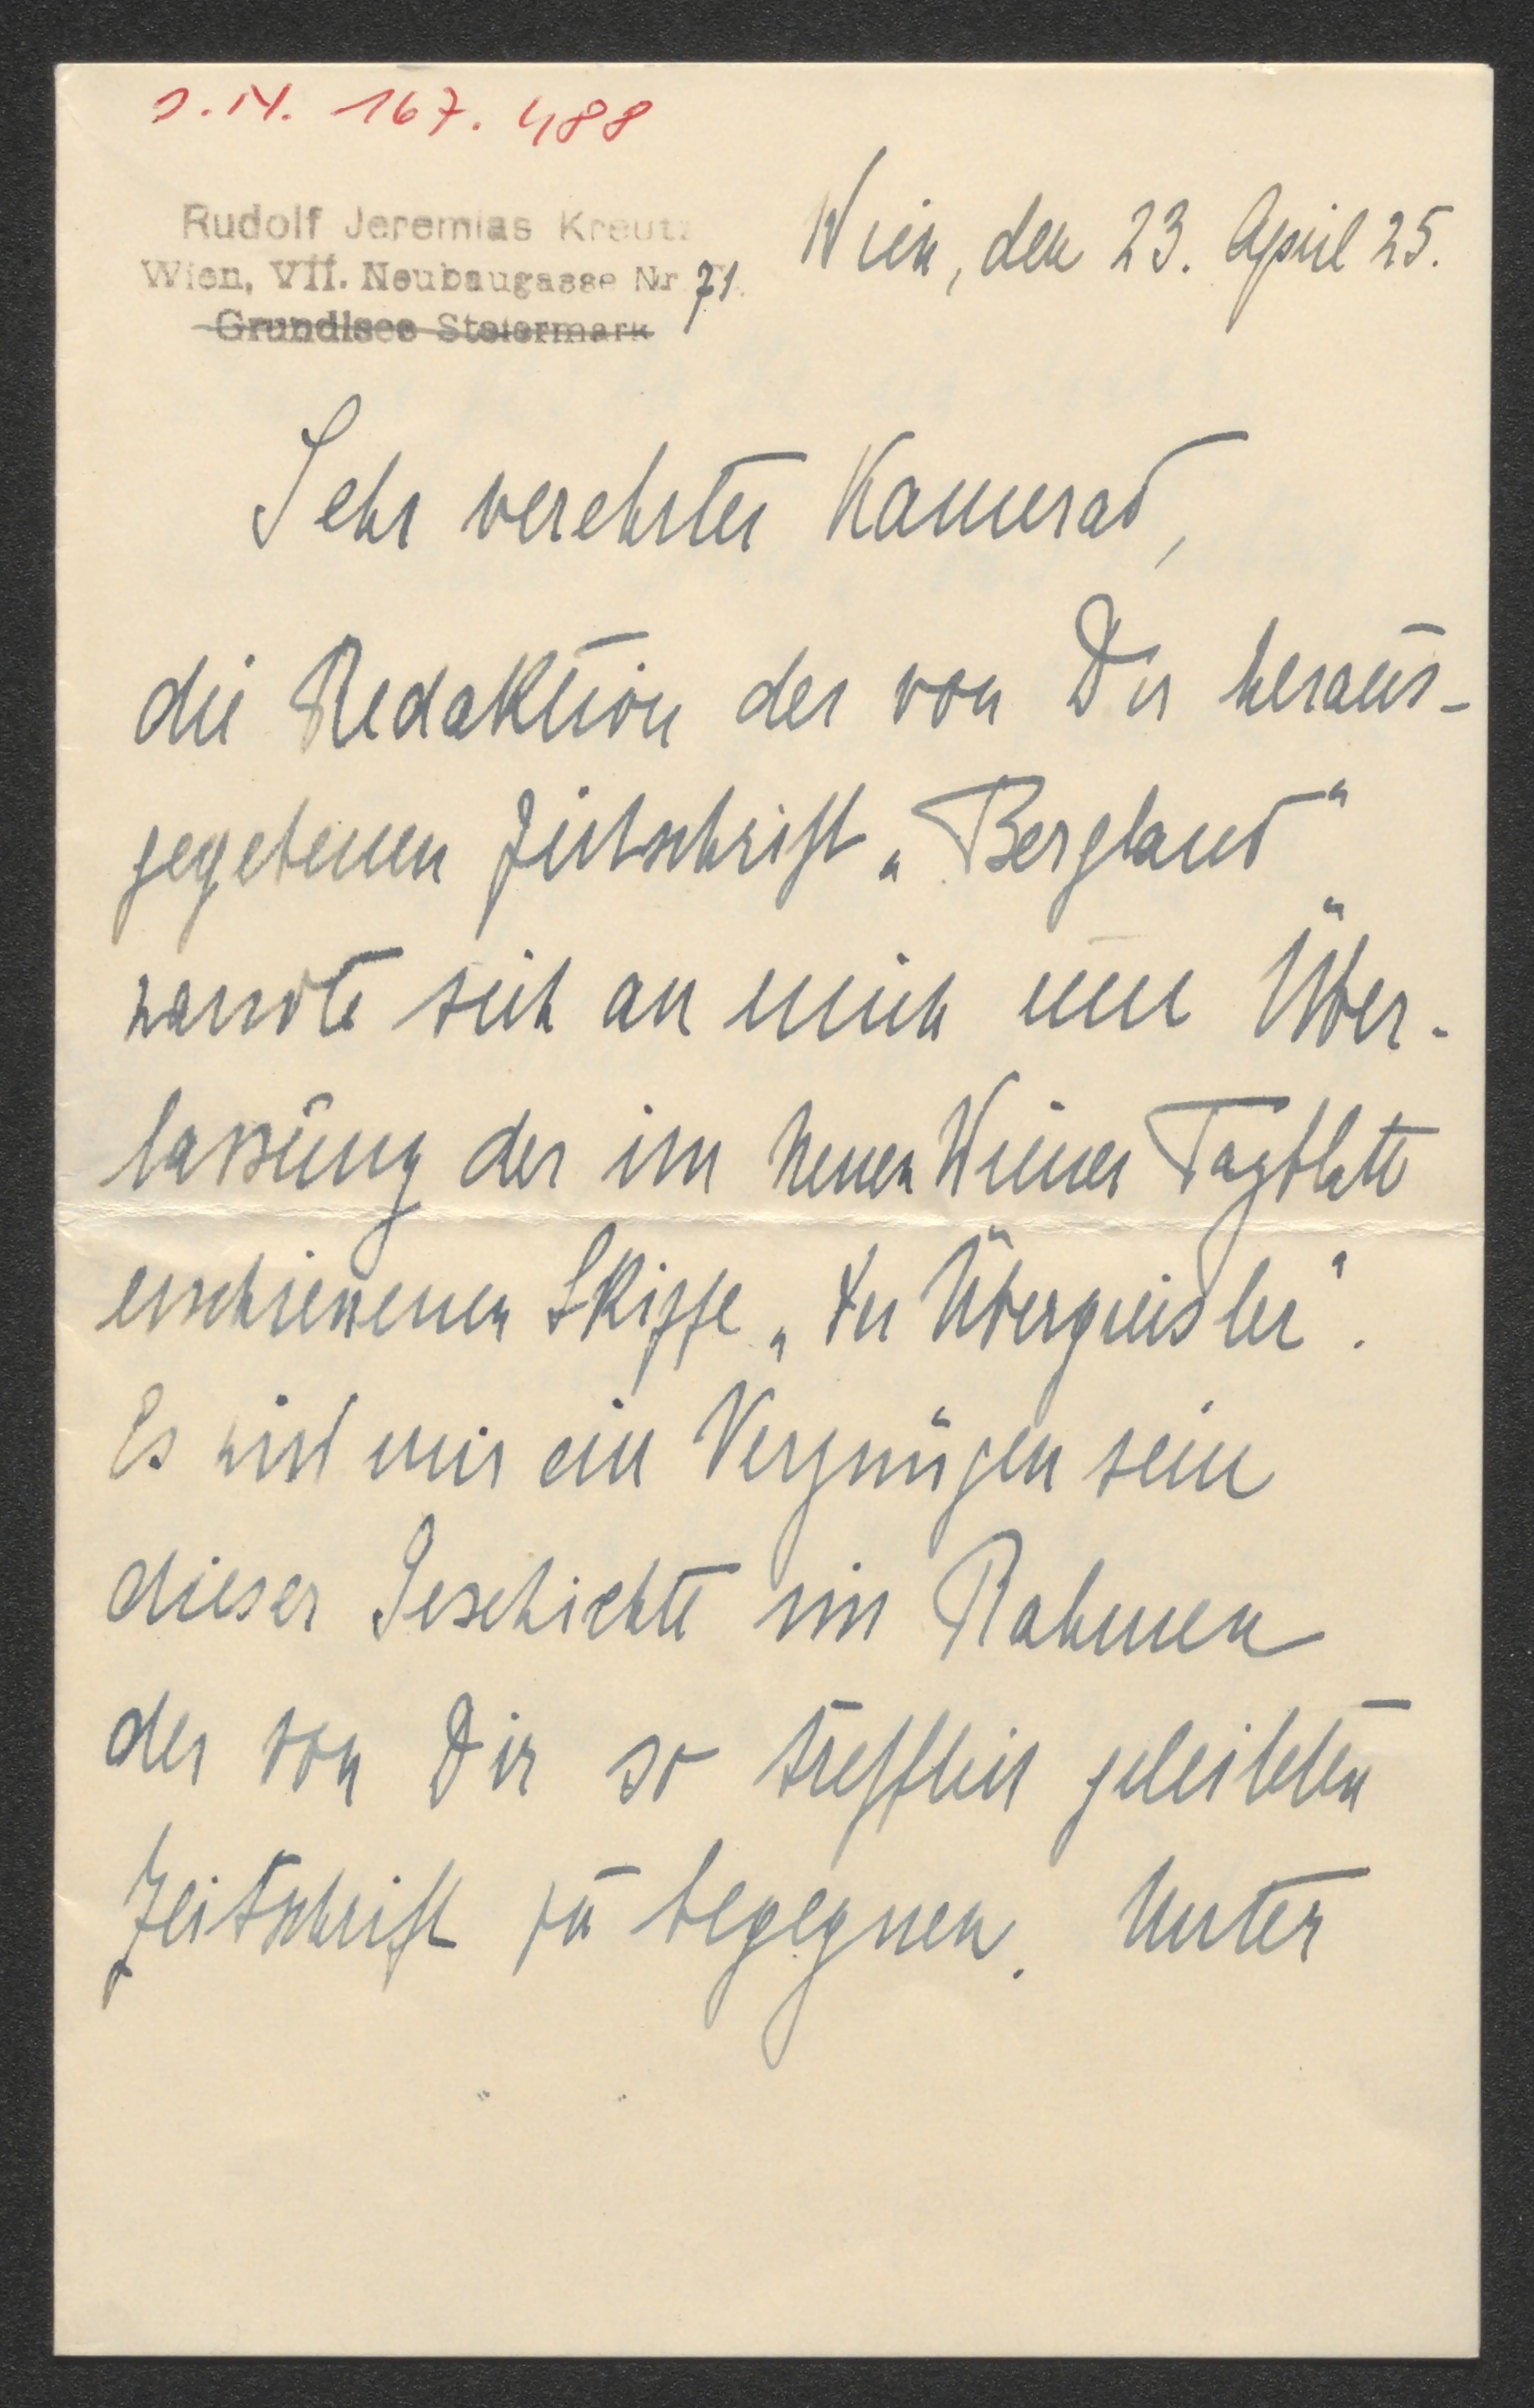 J.N. 167.488
Rudolf Jeremias Kreutz
Wien, VII. Neubaugasse Nr 71.
Grundlsee Steiermark
Wien, den 23. April 25.
Sehr verehrter Kamerad,
die Redaktion der von Dir heraus-
gegebenen Zeitschrift „Bergland"
wandte sich an mich um Über-
lassung der im Neuen Wiener Tagblatt
erschienenen Skizze „Der Übergreisler".
Es wird mir ein Vergnügen sein
dieser Geschichte im Rahmen
der von Dir so trefflich geleiteten
Zeitschrift zu begegnen. Unter